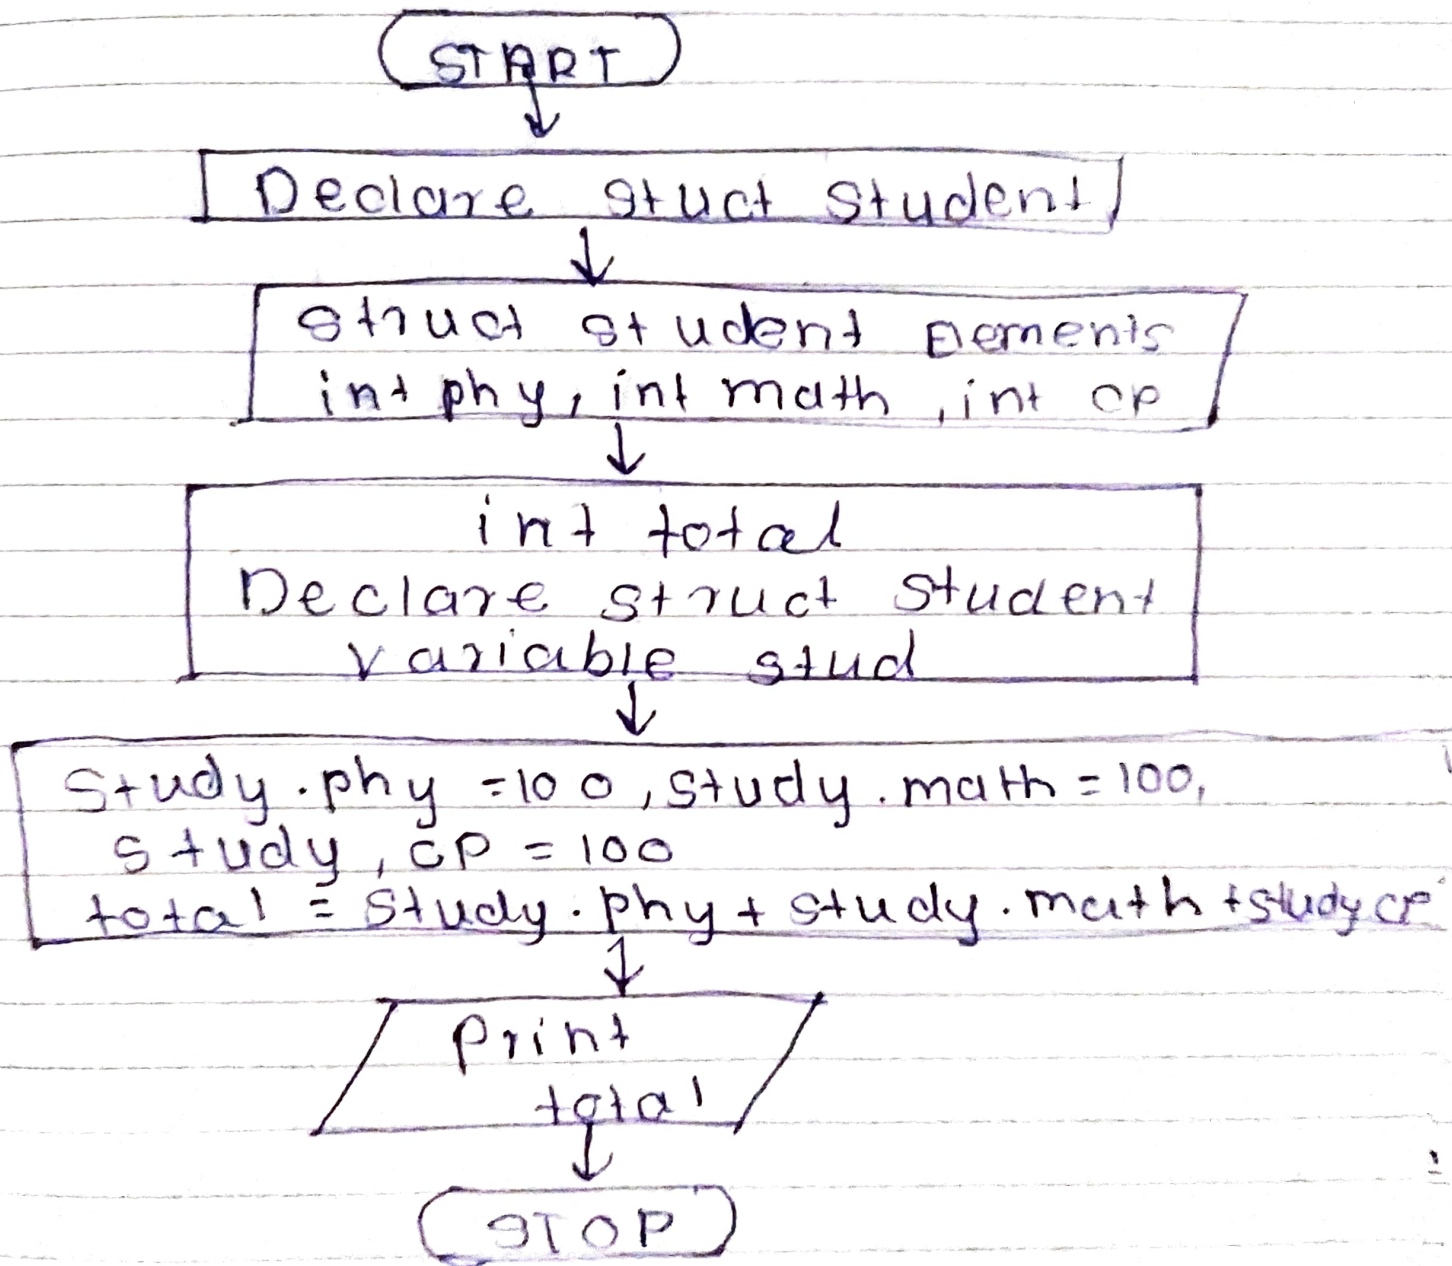 START
Declare stuct student
struct student Elements
int phy, int math, int cp
int total
Declare struct student
variable stud
Study.phy =100, study.math = 100,
study, cp = 100
total = study.phy + study.math + study cp
print
total
STOP